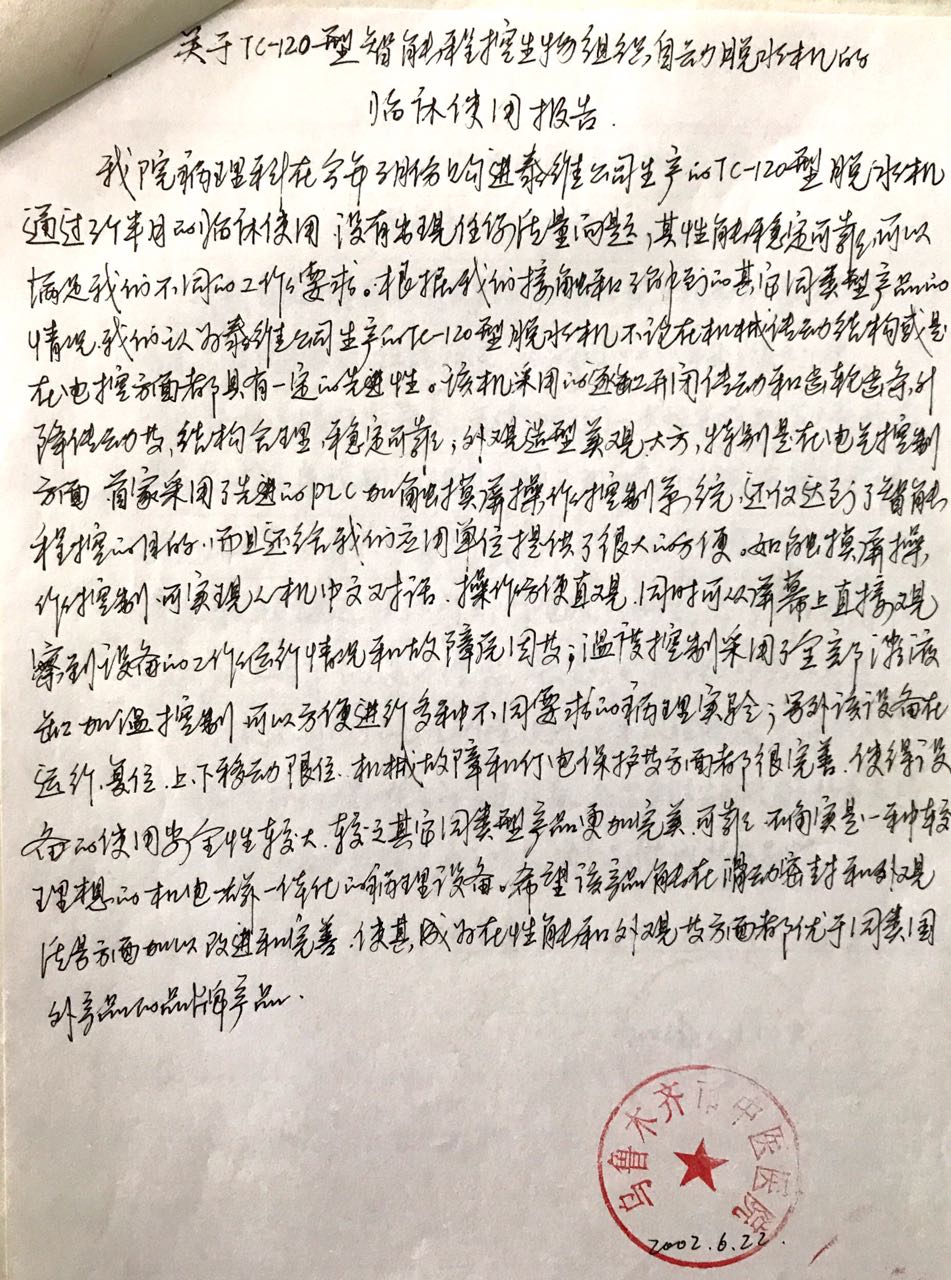 关于TC-120型智能程控生物组织自动脱水机的
临床使用报告.
我院病理科在今年3月份购进泰维公司生产的TC-120型脱水机
通过3个半月的临床使用.没有出现任何质量问题,其性能稳定可靠,可以
满足我们不同的工作要求。根据我们接触和了解到的其它同类型产品的
情况,我们认为泰维公司生产的TC-120型脱水机不论在机械传动结构或是
在电控方面都具有一定的先进性。该机采用的逐缸开闭传动和齿轮齿条升
降传动等,结构合理,稳定可靠;外观造型美观大方,特别是在电气控制
方面 首家采用了先进的PLC加触摸屏操作控制系统,还仅达到了智能
程控的目的,而且还给我们应用单位提供了很大的方便。如触摸屏操
作控制,可实现人机中文对话.操作方便直观.同时可从屏幕上直接观
察到设备的工作运行情况和故障原因等;温度控制采用了全部溶液
缸加温控制 可以方便进行多种不同要求的病理实验;另外该设备在
运行.复位.上、下移动限位、机械故障和停电保护等方面都很完善.使得设
备的使用安全性较大.较之其它同类型产品更加完美.可靠.不确实是一种较
理想的机电一体化的病理设备。希望该产品能在滑动密封和外观
质量方面加以改进和完善.使其成为在性能和外观等方面都优于同类国
外产品的品牌产品.
乌鲁木齐市中医医院
2002.6.22.